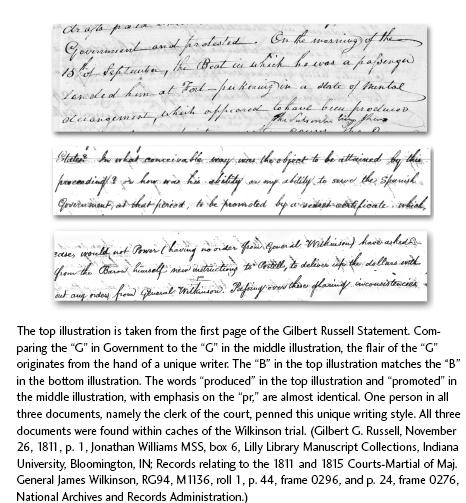 drafts paid
Government and protested. On the morning of the
15th of September, the Boat in which he was a passenger
landed him at Fort-pickering in a state of mental
derangement, which appeared to have been produced
States? In what conceivable way was the object to be attained by this
proceeding? or how was his ability or my ability, to serve the Spanish
Government, at that period, to be promoted by a secret certificate which,
case, would not Power (having no order from General Wilkinson) have asked
from the Baron himself new instructions to Portell, to deliver up the dollars with
out any orders from General Wilkinson. Passing over these glaring inconsistencies
The top illustration is taken from the first page of the Gilbert Russell Statement. Com-
paring the “G” in Government to the “G” in the middle illustration, the flair of the “G”
originates from the hand of a unique writer. The “B” in the top illustration matches the “B”
in the bottom illustration. The words “produced” in the top illustration and “promoted” in
the middle illustration, with emphasis on the “pr,” are almost identical. One person in all
three documents, namely the clerk of the court, penned this unique writing style. All three
documents were found within caches of the Wilkinson trial. (Gilbert G. Russell, November
26, 1811, p. 1, Jonathan Williams MSS, box 6, Lilly Library Manuscript Collections, Indiana
University, Bloomington, IN; Records relating to the 1811 and 1815 Courts-Martial of Maj.
General James Wilkinson, RG94, M1136, roll 1, p. 44, frame 0296, and p. 24, frame 0276,
National Archives and Records Administration.)